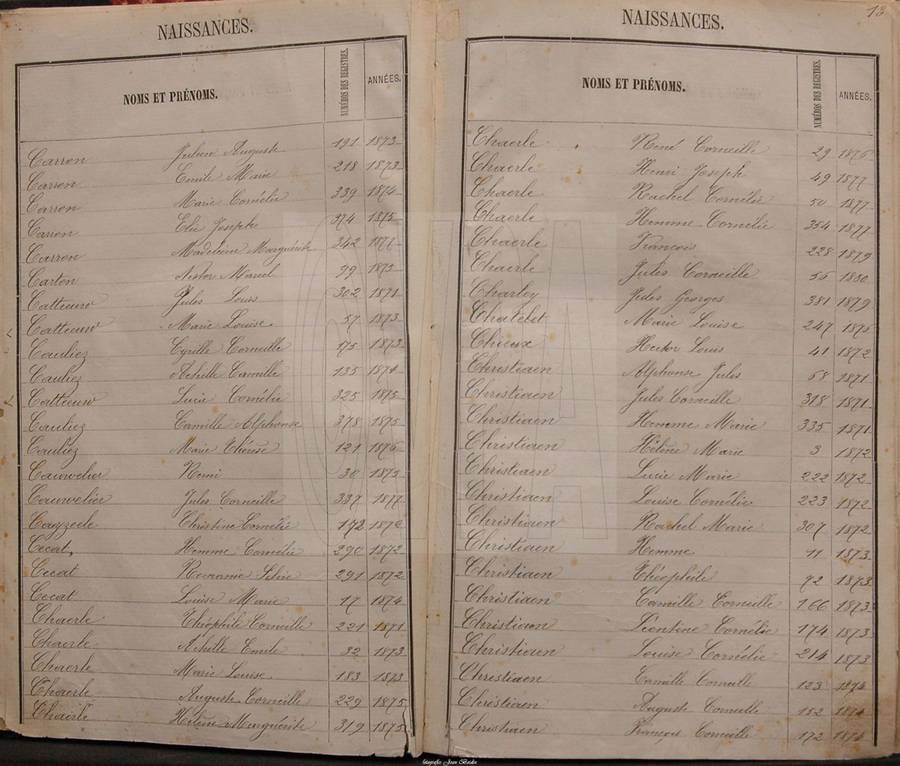 NAISSANCES.
NOMS ET PRÉNOMS. NUMÉROS DES REGISTRES. ANNÉES.
Carron Julien Auguste 191 1873
Carron Emile Marie 218 1873
Carron Marie Cornélie 339 1874
Carron Elie Joseph 374 1875
Carron Madeleine Marguérite 242 1877
Carton Nestor Marcel 99 1875
Catteeuw Jules Louis 302 1871
Catteeuw Marie Louise 57 1873
Cauliez Cyrille Corneille 75 1873
Cauliez Achille Camille 135 1874
Catteeuw Lucie Cornélie 325 1875
Cauliez Camille Alphonse 378 1875
Cauliez Marie Thérèse 121 1876
Cauwelier Remi 30 1875
Cauwelier Jules Corneille 337 1877
Cayzeele Christine Cornélie 172 1876
Cecat Hemme Cornélie 290 1872
Cecat 291 1872
Cecat Louise Marie 17 1874
Chaerle Théophile Corneille 221 1871
Chaerle Achille Emile 32 1873
Chaerle Marie Louise 183 1873
Chaerle Auguste Corneille 229 1875
Chaerle Hélène Marguérite 319 1875
13
NAISSANCES.
NOMS ET PRÉNOMS. NUMÉROS DES REGISTRES. ANNÉES.
Chaerle René Corneille 29 1876
Chaerle Henri Joseph 49 1877
Chaerle Rachel Cornélie 50 1877
Chaerle Hemme Cornélie 354 1877
Chaerle François 228 1879
Chaerle Jules Corneille 56 1880
Charley Jules Georges 381 1879
Chatelet Marie Louise 247 1876
Chieux Hector Louis 41 1872
Christiaen Alphonse Jules 68 1871
Christiaen Jules Corneille 318 1871
Christiaen Hemme Marie 335 1871
Christiaen Hélène Marie 3 1872
Christiaen Lucie Marie 222 1872
Christiaen Louise Cornélie 223 1872
Christiaen Rachel Marie 307 1872
Christiaen Hemme 11 1873
Christiaen Théophile 92 1873
Christiaen Camille Corneille 166 1873
Christiaen Léontine Cornélie 174 1873
Christiaen Louise Cornélie 214 1873
Christiaen Camille Corneille 123 1874
Christiaen Auguste Corneille 152 1874
Christiaen François Corneille 172 1874